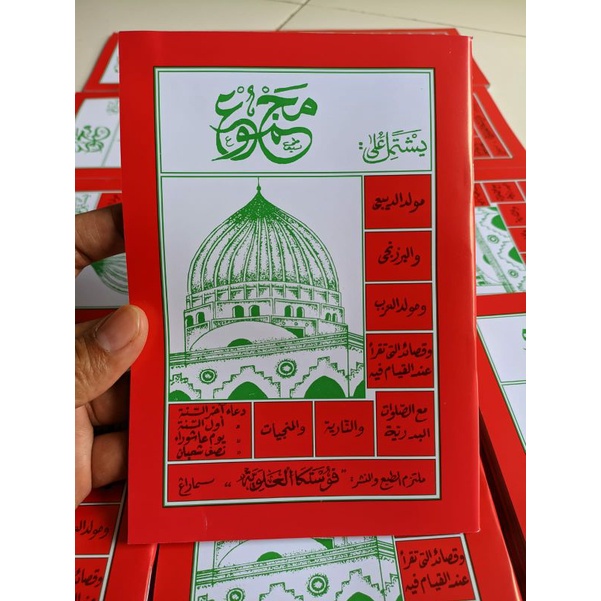 مجموع
يشتمل على :
مولد الديبعي
والبرزنجى
ومولد العرب
وقصائد التى تقرأ
عند القيام فيه
مع الصلوات
البدرية
والنارية
والمنجيات
دعاء آخر السنة
" أول السنة
" يوم عاشوراء
" نصف شعبان
ملتزم الطبع والنشر : "فوستكا العلوية" سماراغ
وقصائد التى تقرأ
عند القيام فيه